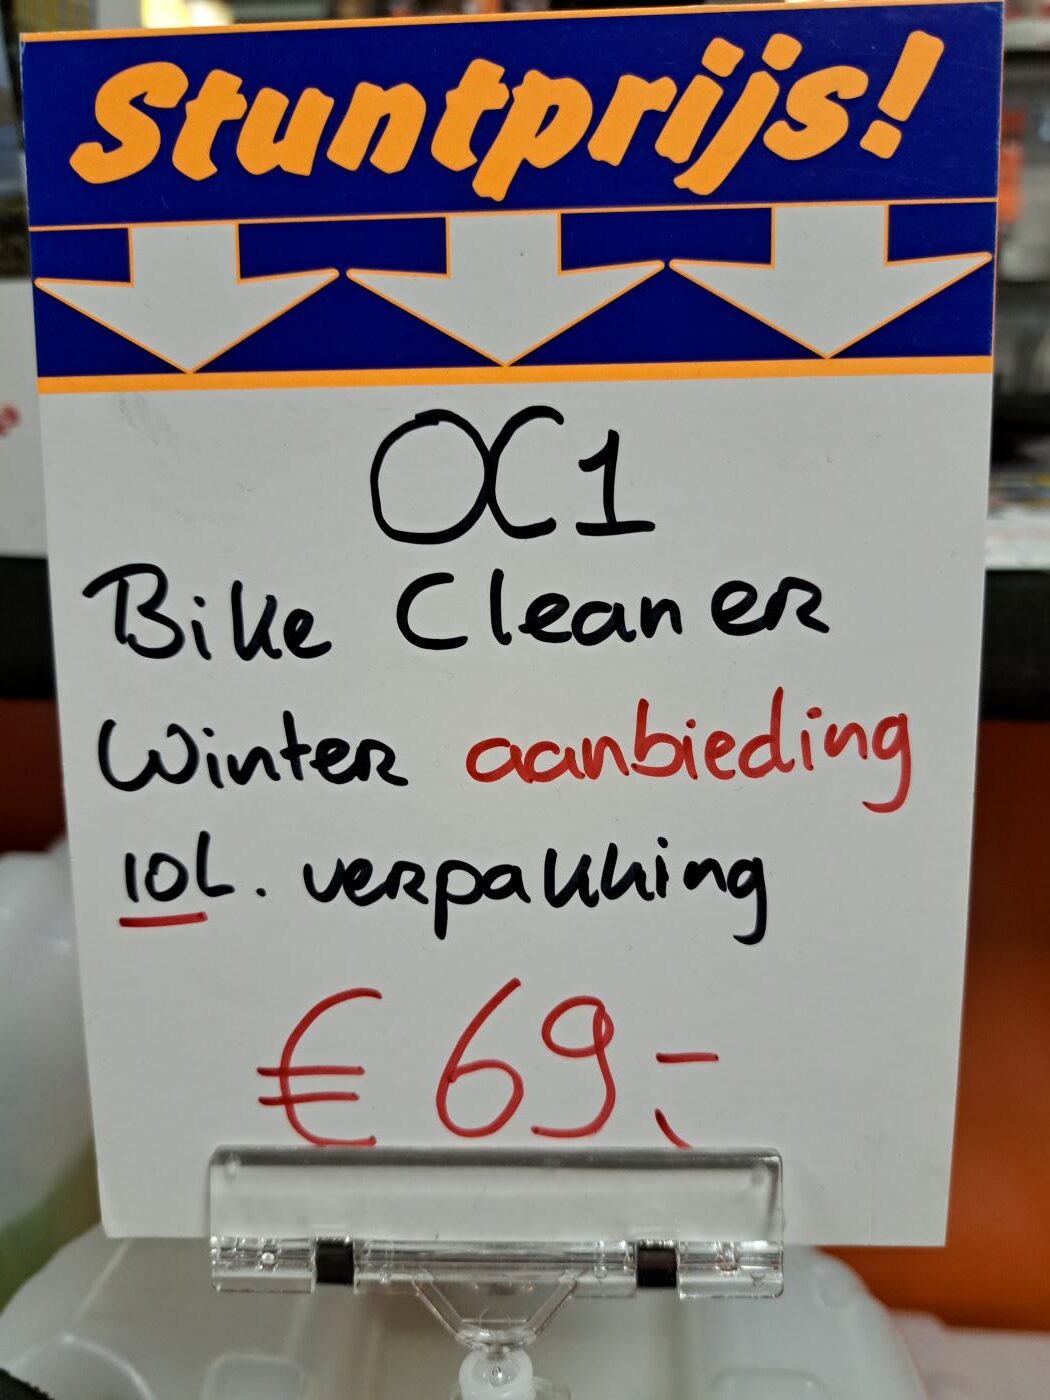 Stuntprijs!
OC1
Bike Cleaner
Winter aanbieding
10L. verpakking
€ 69,-